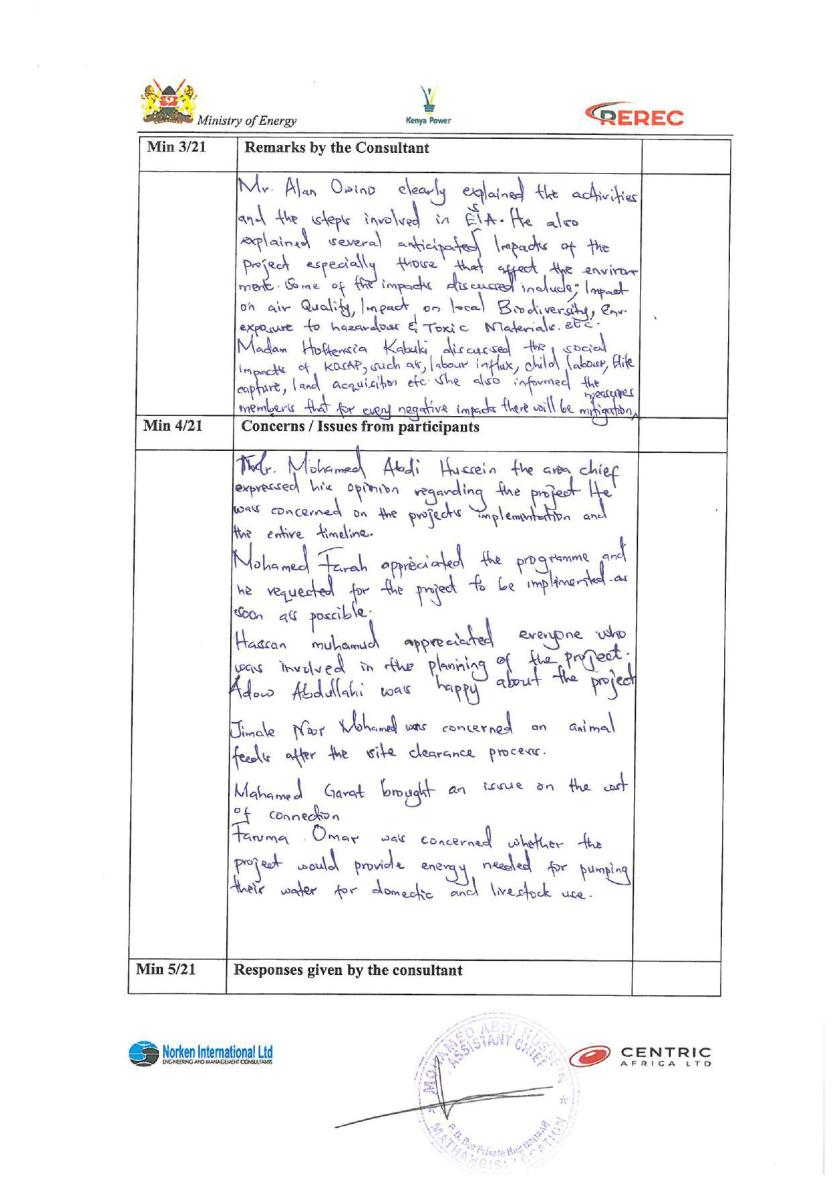 Ministry of Energy
Kenya Power
REREC
Min 3/21 Remarks by the Consultant
Mr. Alan Owino clearly explained the activities
and the steps involved in ESIA. He also
explained several anticipated Impacts of the
project especially those that affect the environ
ment. Some of the impacts discussed include; Impact
on air Quality, Impact on local Biodiversity, Env.
exposure to hazardous & Toxic Materials. etc.
Madam Hortensia Kabuki discussed the social
impacts of KOSAP, such as, labour influx, child labour, Elite
capture, land acquisition etc. She also informed the
members that for every negative impacts there will be mitigation measures
Min 4/21 Concerns / Issues from participants
Mr. Mohamed Abdi Hussein the area chief
expressed his opinion regarding the project He
was concerned on the projects implementation and
the entire timeline.
Mohamed Farah appreciated the programme and
he requested for the project to be implimented as
soon as possible.
Hassan muhamud appreciated everyone who
was involved in the planning of the project.
Adow Abdullahi was happy about the project
Jimale Noor Mohamed was concerned on animal
feeds after the site clearance process.
Mahamed Garat brought an issue on the cost
of connection
Omar was concerned whether the
project would provide energy needed for pumping
their water for domestic and livestock use.
Min 5/21 Responses given by the consultant
Norken International Ltd
ENGINEERING AND MANAGEMENT CONSULTANTS
MOHAMED ABDI HUSSEIN
ASSISTANT CHIEF
P. O. Box Private Bag
LOCATION
CENTRIC
AFRICA LTD